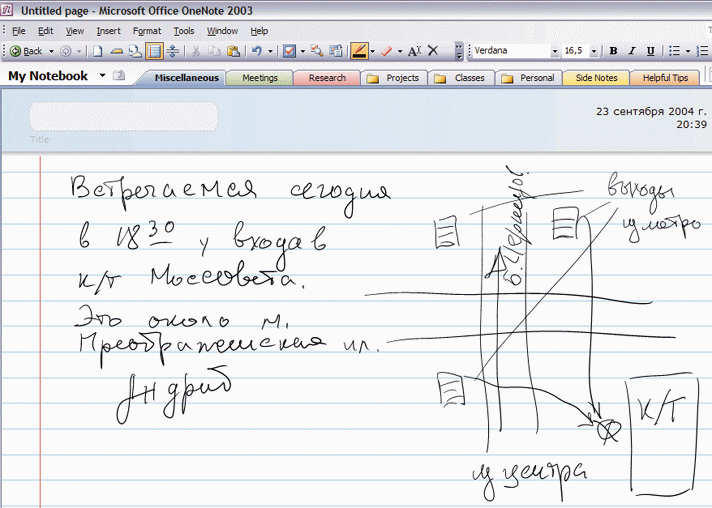 Untitled page - Microsoft Office OneNote 2003
File Edit View Insert Format Tools Window Help
Back Verdana 16,5 B I U
My Notebook Miscellaneous Meetings Research Projects Classes Personal Side Notes Helpful Tips
23 сентября 2004 г.
20:39
Title
Встречаемся сегодня
в 18 30 у входа в
к/т Моссовета.
Это около м.
Преображенская пл.
Андрей
выходы
из метро
Б. Черкизов.
К/Т
из центра